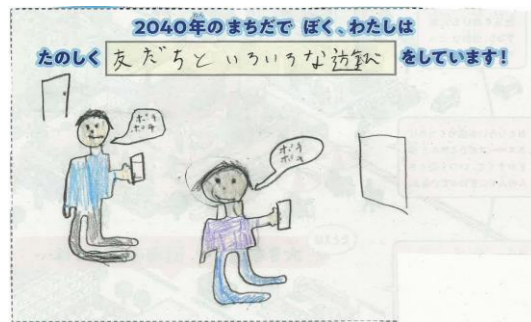 2040年のまちだで ぼく、わたしは
たのしく 友だちと いろいろな 遊び をしています!
ボキ
ボキ
ボキ
ボキ